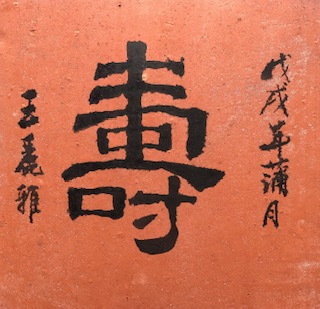 戊戌年蒲月
壽
王麗雅